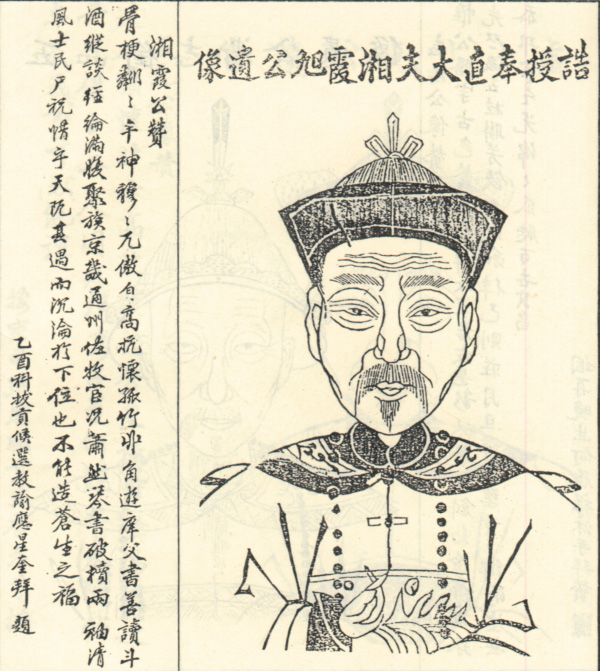 誥授奉直大夫湘霞旭公遺像
湘霞公贊
骨梗翻〻乎神穆〻兀傲自高抗懷孤竹丱角遊庠父書善讀斗
酒縱談經綸滿腹聚族京畿通州佐牧官况蕭然琴書破櫝兩袖清
風士民尸祝惜乎天阨其遇而沉淪於下位也不能造蒼生之福
乙酉科拔貢候選教諭應星奎拜題